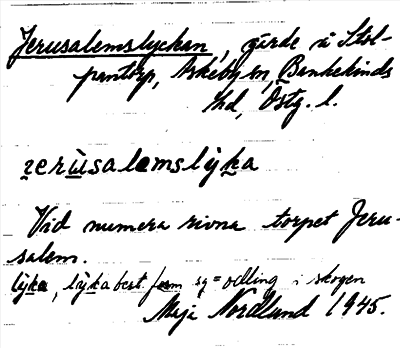 Jerusalemslyckan, gärde å Stol-
pantorp, Askeby sn, Bankekinds
hd, Östg. l.
ꞩerùsalemslỳka
Vid numera rivna torpet Jeru-
salem.
lỳka, lỳka best. form sg = odling i skogen
Maja Nordlund 1945.